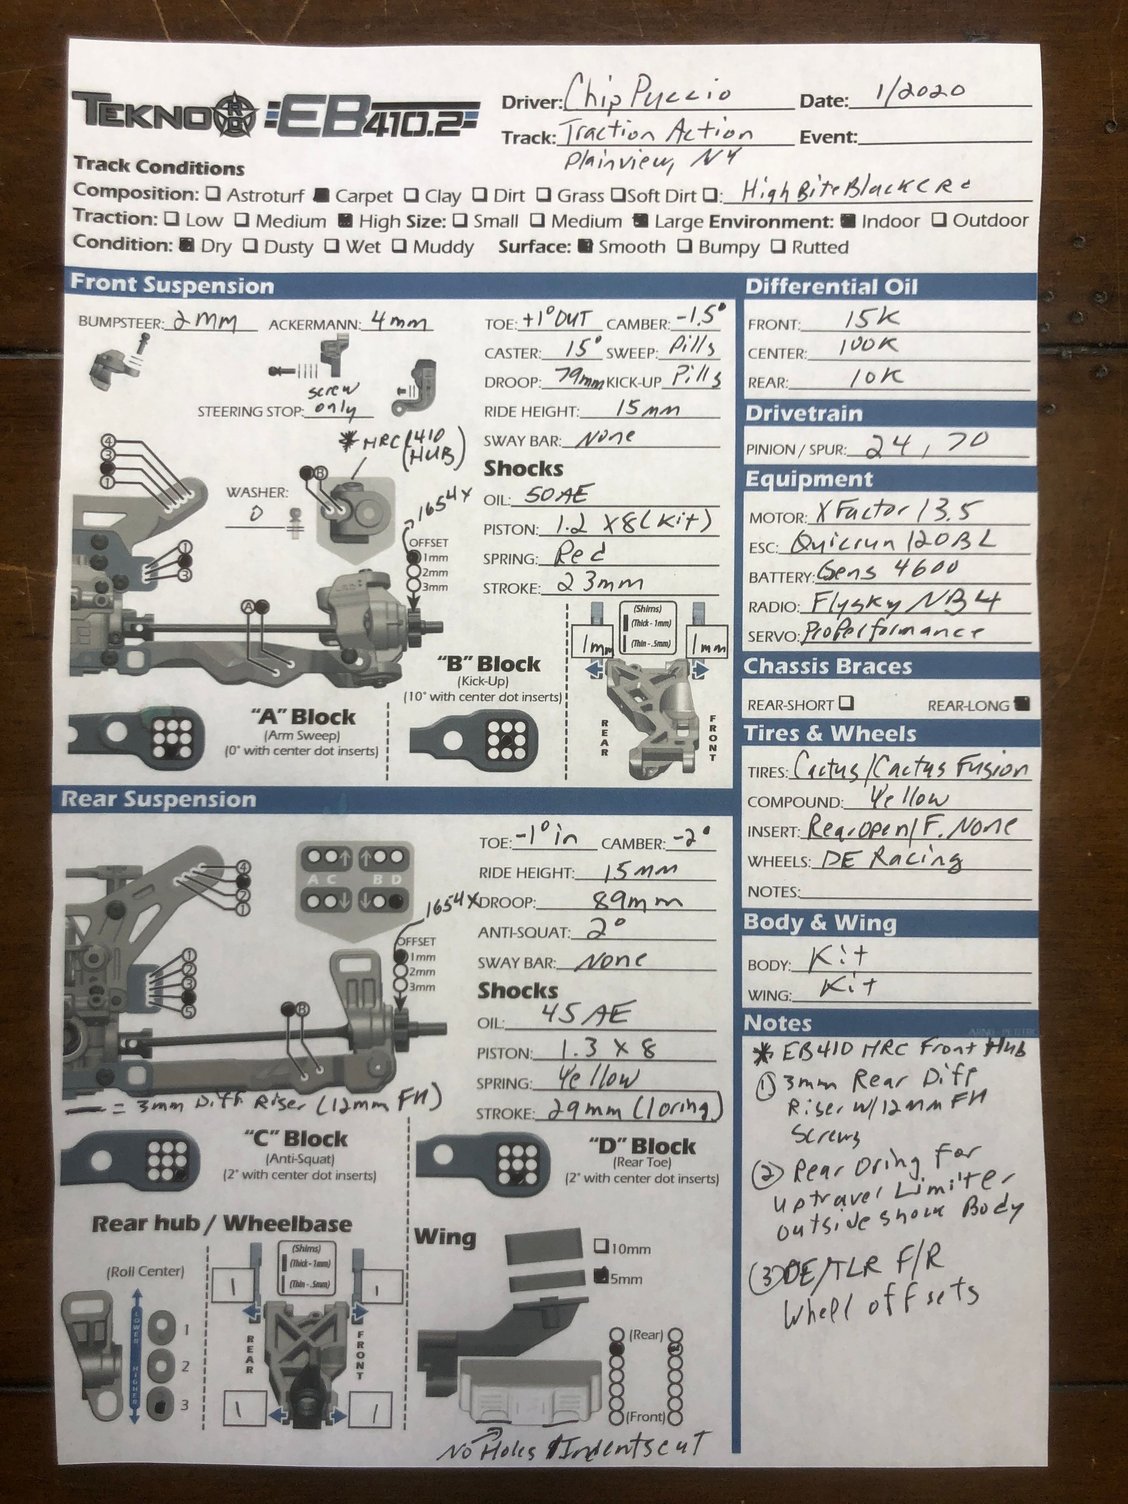 TEKNO RC EB410.2
Driver: Chip Puccio Date: 1/2020
Track: Traction Action Event:
Plainview, NY
Track Conditions
Composition: Astroturf Carpet Clay Dirt Grass Soft Dirt : High Bite Black CRC
Traction: Low Medium High Size: Small Medium Large Environment: Indoor Outdoor
Condition: Dry Dusty Wet Muddy Surface: Smooth Bumpy Rutted
Front Suspension
BUMPSTEER: 2mm ACKERMANN: 4mm
STEERING STOP: screw only
* HRC (410 HUB)
WASHER: 0
4
3
1
B
1654X
OFFSET
1mm
2mm
3mm
1
3
A
TOE: +1° OUT CAMBER: -1.5°
CASTER: 15° SWEEP: Pills
DROOP: 79mm KICK-UP Pills
RIDE HEIGHT: 15mm
SWAY BAR: None
Shocks
OIL: 50AE
PISTON: 1.2 x8 (Kit)
SPRING: Red
STROKE: 23mm
"A" Block
(Arm Sweep)
(0° with center dot inserts)
"B" Block
(Kick-Up)
(10° with center dot inserts)
(Shims)
(Thick - 1mm)
(Thin - .5mm)
1mm 1mm
REAR FRONT
Rear Suspension
4
2
1
A C B D
1654X
OFFSET
1mm
2mm
3mm
1
2
3
5
B
= 3mm Diff Riser (12mm FH)
TOE: -1° in CAMBER: -2°
RIDE HEIGHT: 15mm
DROOP: 89mm
ANTI-SQUAT: 2°
SWAY BAR: None
Shocks
OIL: 45 AE
PISTON: 1.3 x 8
SPRING: Yellow
STROKE: 29mm (1 oring)
"C" Block
(Anti-Squat)
(2° with center dot inserts)
"D" Block
(Rear Toe)
(2° with center dot inserts)
Rear hub / Wheelbase
(Roll Center)
LOWER
HIGHER
1
2
3
(Shims)
(Thick - 1mm)
(Thin - .5mm)
1 1
REAR FRONT
1 1
Wing
10mm
5mm
(Rear)
(Front)
No Holes Indents cut
Differential Oil
FRONT: 15K
CENTER: 100K
REAR: 10K
Drivetrain
PINION / SPUR: 24, 70
Equipment
MOTOR: X Factor 13.5
ESC: Quicrun 120BL
BATTERY: Gens 4600
RADIO: Flysky NB4
SERVO: ProPerformance
Chassis Braces
REAR-SHORT REAR-LONG
Tires & Wheels
TIRES: Cactus/Cactus Fusion
COMPOUND: Yellow
INSERT: Rear open/F. None
WHEELS: DE Racing
NOTES:
Body & Wing
BODY: Kit
WING: Kit
Notes
* EB410 HRC Front Hub
① 3mm Rear Diff
Riser w/12mm FH
Screws
② Rear Oring For
uptravel Limiter
outside shock Body
③ DE/TLR F/R
Wheel offsets